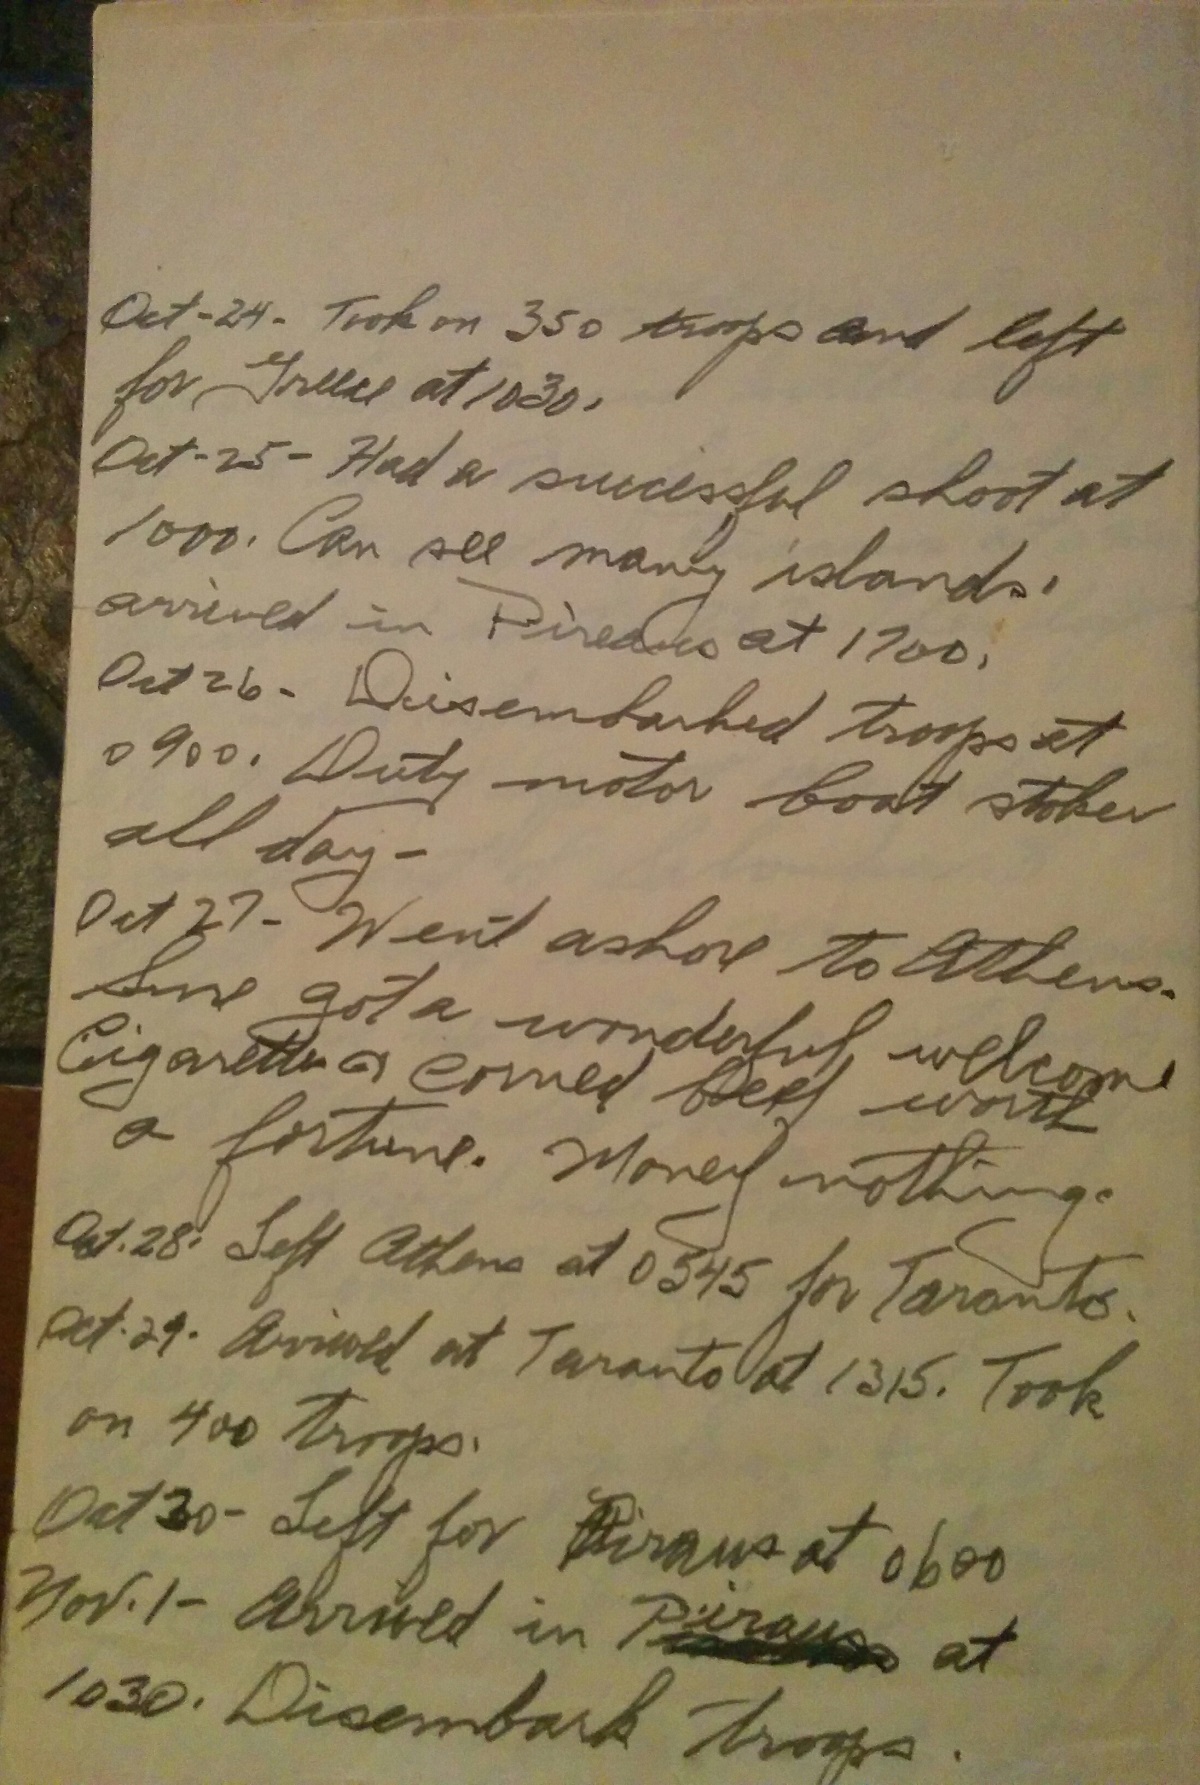 Oct-24- Took on 350 troops and left
for Greece at 1030.
Oct-25- Had a successful shoot at
1000. Can see many islands.
arrived in Pireaus at 1700.
Oct 26- Disembarked troops at
0900. Duty motor boat stoker
all day-
Oct 27- Went ashore to Athens.
Sure got a wonderful welcome
Cigarettes & corned beef worth
a fortune. Money nothing.
Oct. 28. Left Athens at 0545 for Taranto.
Oct. 29. Arrived at Taranto at 1315. Took
on 400 troops.
Oct 30- Left for Piraus at 0600
Nov. 1- Arrived in Piraus at
1030. Disembark troops.